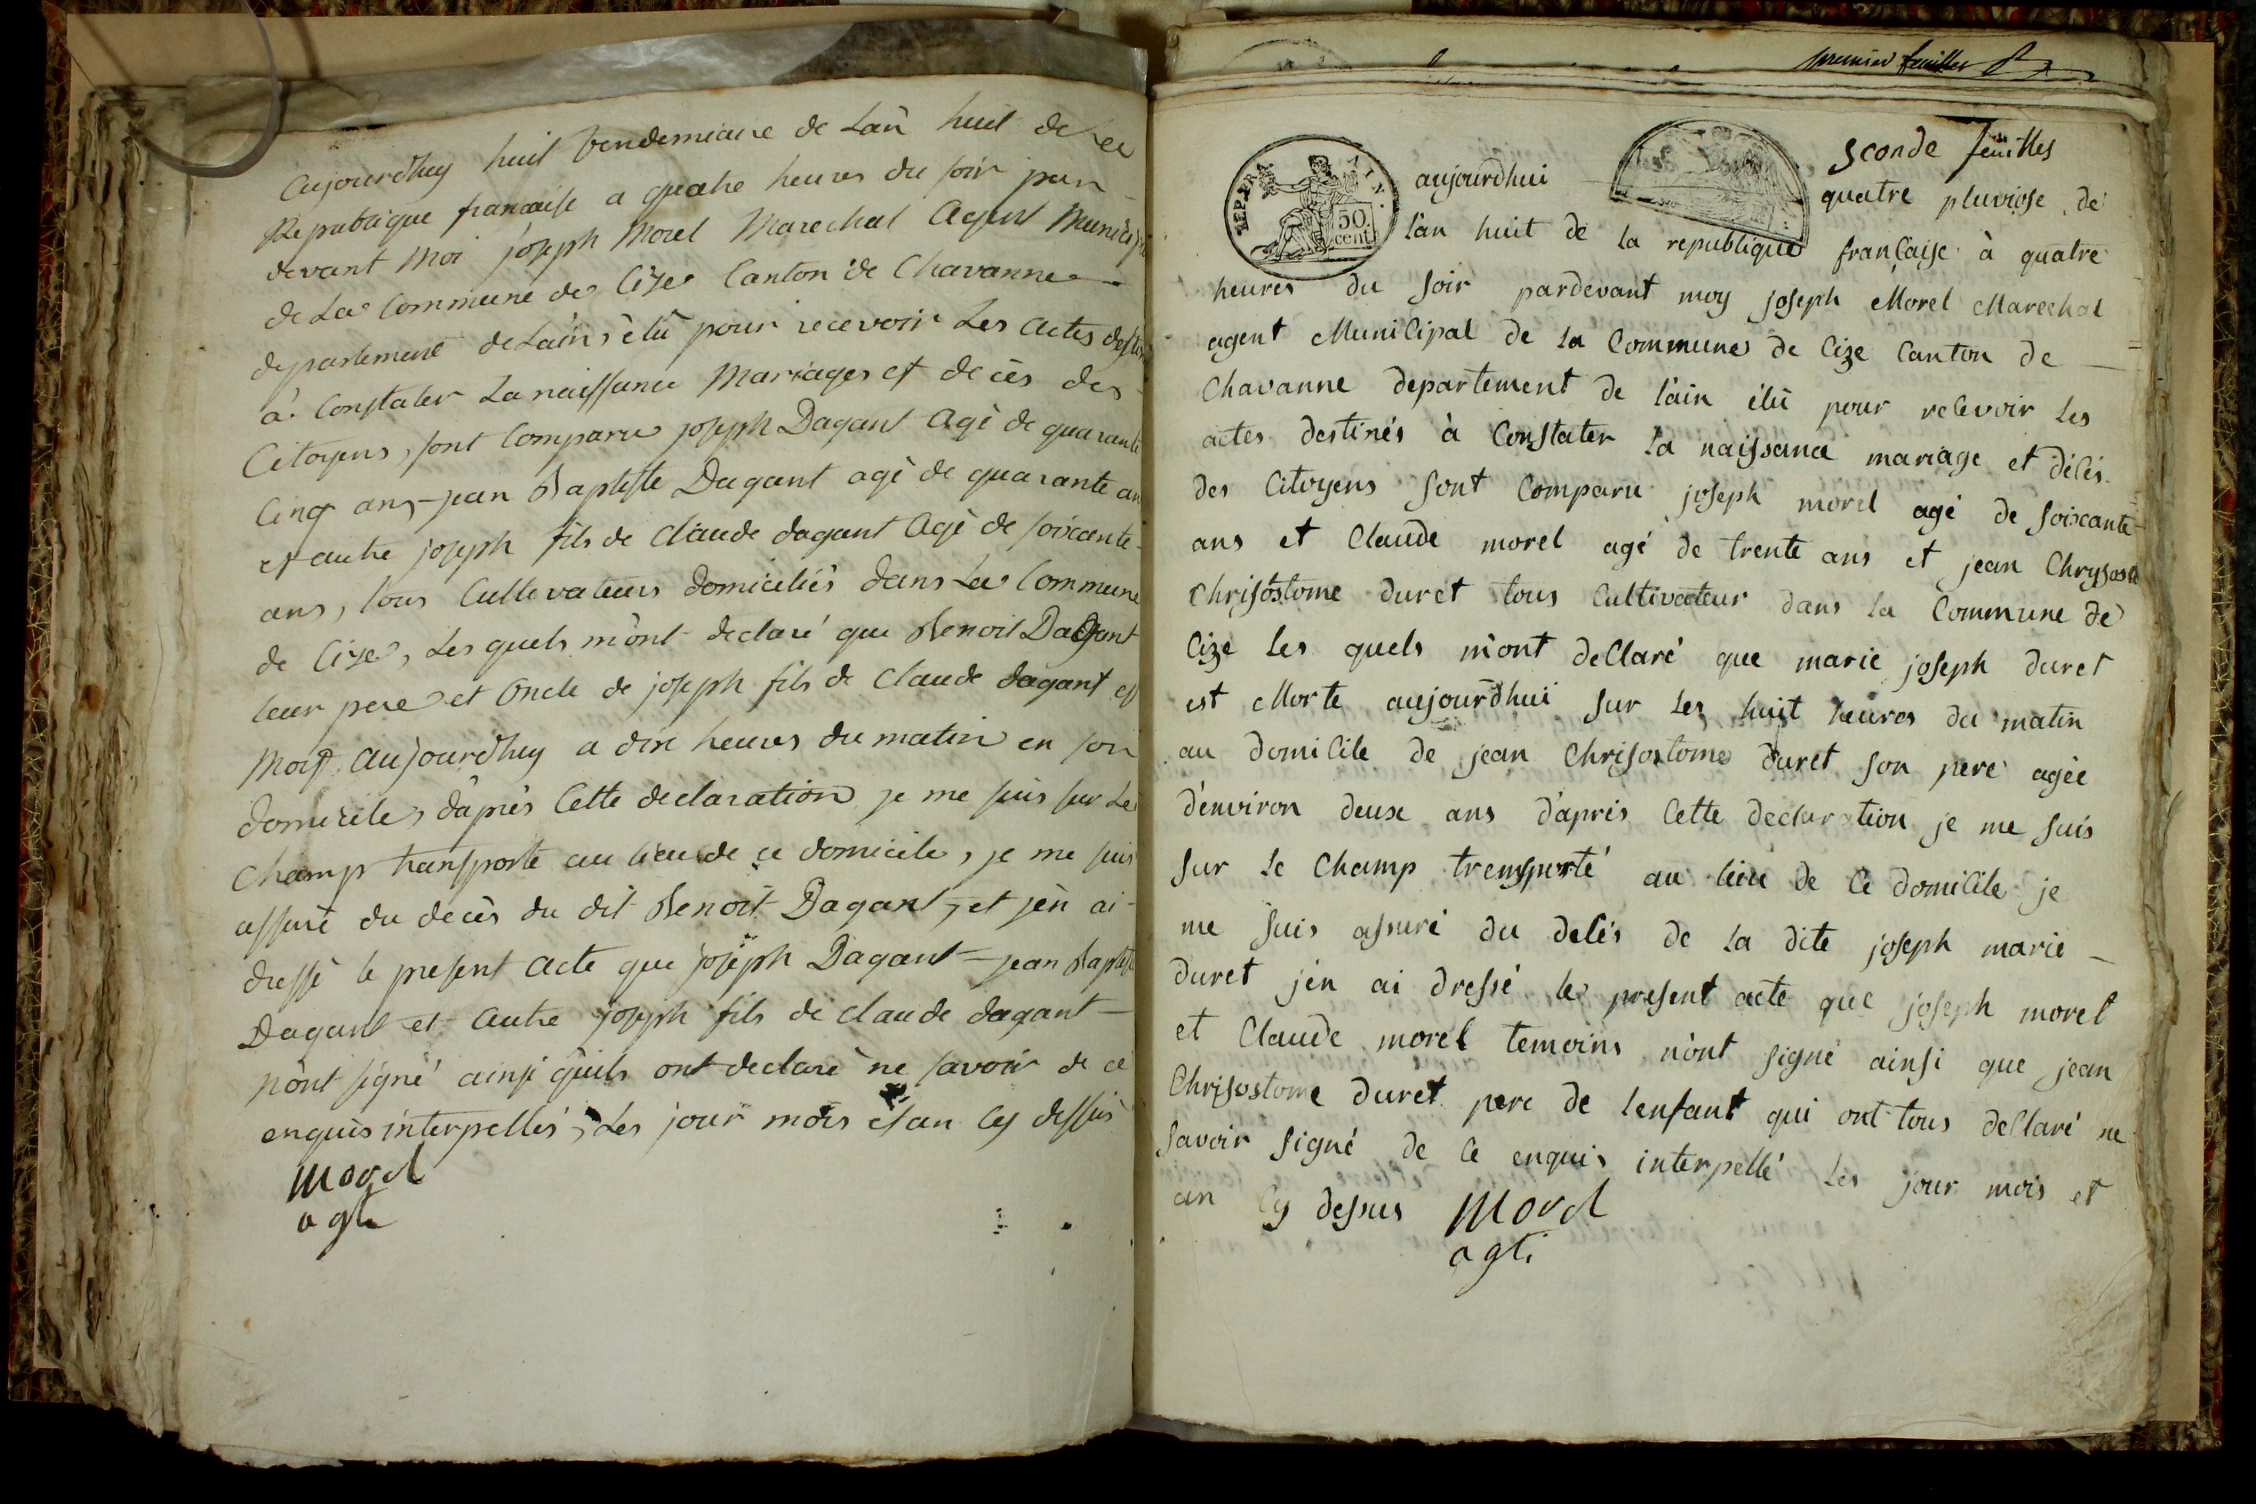 Aujourdhuy huit vendemiaire de Lan huit de La
Republique francaise a quatre heures du soir par
devant Moi joseph Morel Marechal Agent Municip
de La Commune de Cize Canton de Chavanne
departement de Lain, élu pour recevoir Les actes desti
à Constater La naissance Mariages et decès des
Citoyens, sont Comparu joseph Dagant Agé de quarante
Cinq ans - jean Baptiste Dagant agé de quarante an
et autre joseph fils de Claude dagant Agé de soixante
ans, tous Cultivateurs domiciliés dans La Commune
de Cize, Les quels m'ont declaré que Benoit Dagant
leur pere et Oncle de joseph fils de Claude dagant est
Mort aujourdhuy a dix heures du matin en son
domicile, d'après Cette declaration je me suis sur Le
Champ transporté au lieu de ce domicile, je me suis
assuré du decès du dit Benoit Dagant, et j'en ai
dressé le present acte que joseph Dagant - jean Baptiste
Dagant et autre joseph fils de claude dagant
n'ont signé ainsi qu'ils ont declaré ne savoir de ce
enquis interpellés, Les jour mois et an Cy dessus
Morel
agt
premier feuillet
Sconde feuilles
REP. FRA.
50 cent
aujourdhui quatre pluviose de
l'an huit de la republique française à quatre
heures du soir pardevant moy joseph Morel Marechal
agent Municipal de la Commune de Cize Canton de
Chavanne departement de l'ain élu pour recevoir les
actes destinés à Constater la naissance mariage et décés
des Citoyens sont Comparu joseph morel agé de soixante
ans et Claude morel agé de trente ans et jean Chrysost
Chrisostome duret tous Cultivateur dans la Commune de
Cize les quels m'ont declaré que marie joseph duret
est Morte aujourdhui sur les huit heures du matin
au domicile de jean Chrisostome duret son pere agée
d'environ deux ans d'après Cette declaration je me suis
sur le Champ transporté au lieu de Ce domicile je
me suis assuré du decés de la dite joseph marie
duret j'en ai dressé le present acte que joseph morel
et Claude morel temoins n'ont signé ainsi que jean
Chrisostome duret pere de lenfant qui ont tous declaré ne
savoir signé de Ce enquis interpellé les jour mois et
an Cy dessus Morel
agt.